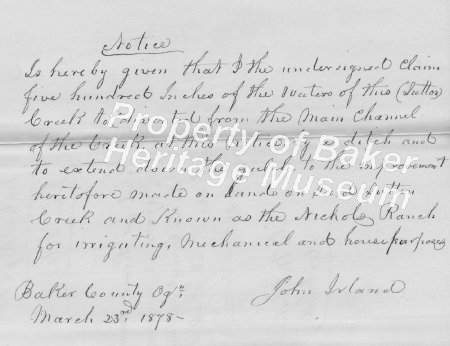 Notice
Is hereby given that I the undersigned Claim
five hundred Inches of the Waters of this (Sutton)
Creek to be diverted from the Main Channel
of the Creek at this notice by a ditch and
to extend down the gulch to the improvement
heritofore made on Lands on Said Sutton
Creek and Known as the Nichols Ranch
for irrigating, Mechanical and house purposes
Baker County Ogn.
March 23rd 1878
John Irland
Property of Baker
Heritage Museum